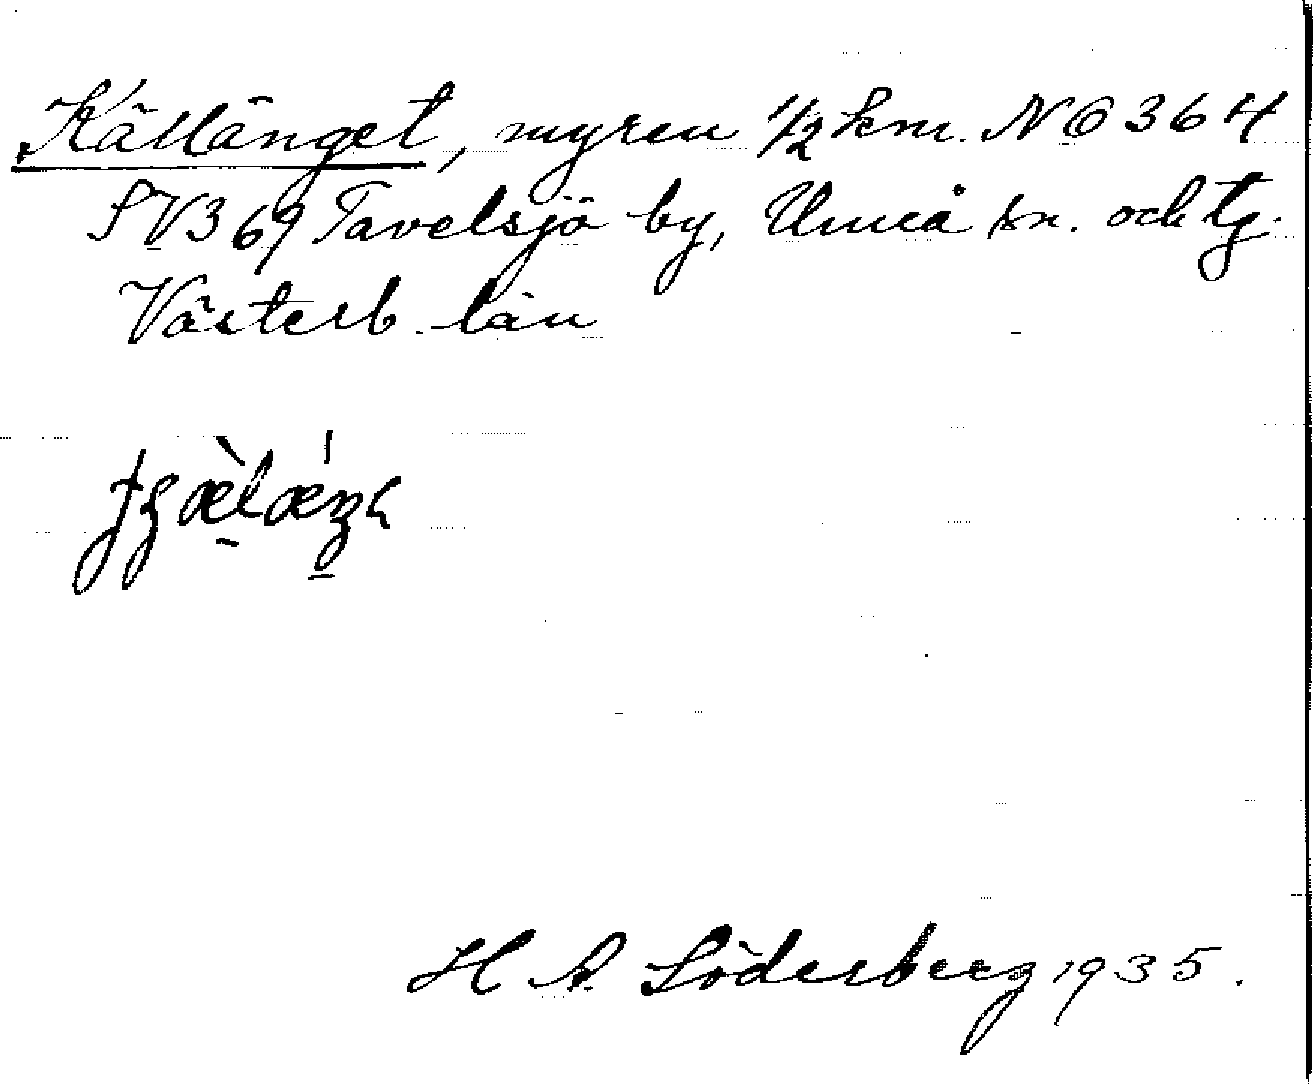 Källänget, myren 1/2 km. NO 364
SV 369 Tavelsjö by, Umeå sn. och tg.
Västerb. län
H A. Söderberg 1935.